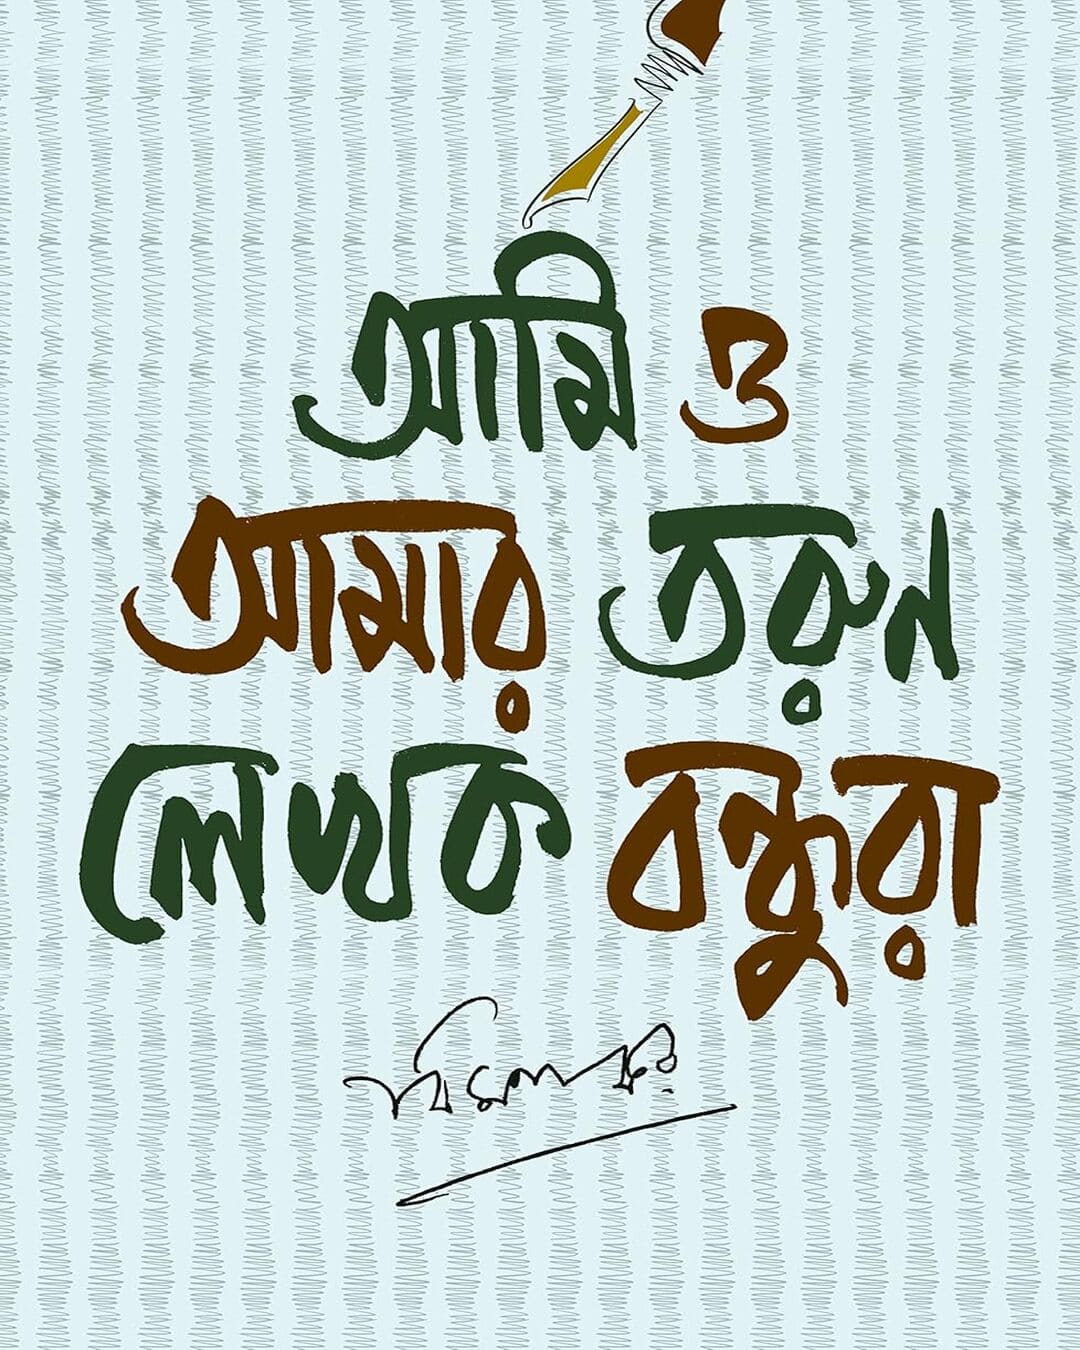 আমি ও
আমার তরুন
লেখক বন্ধুরা